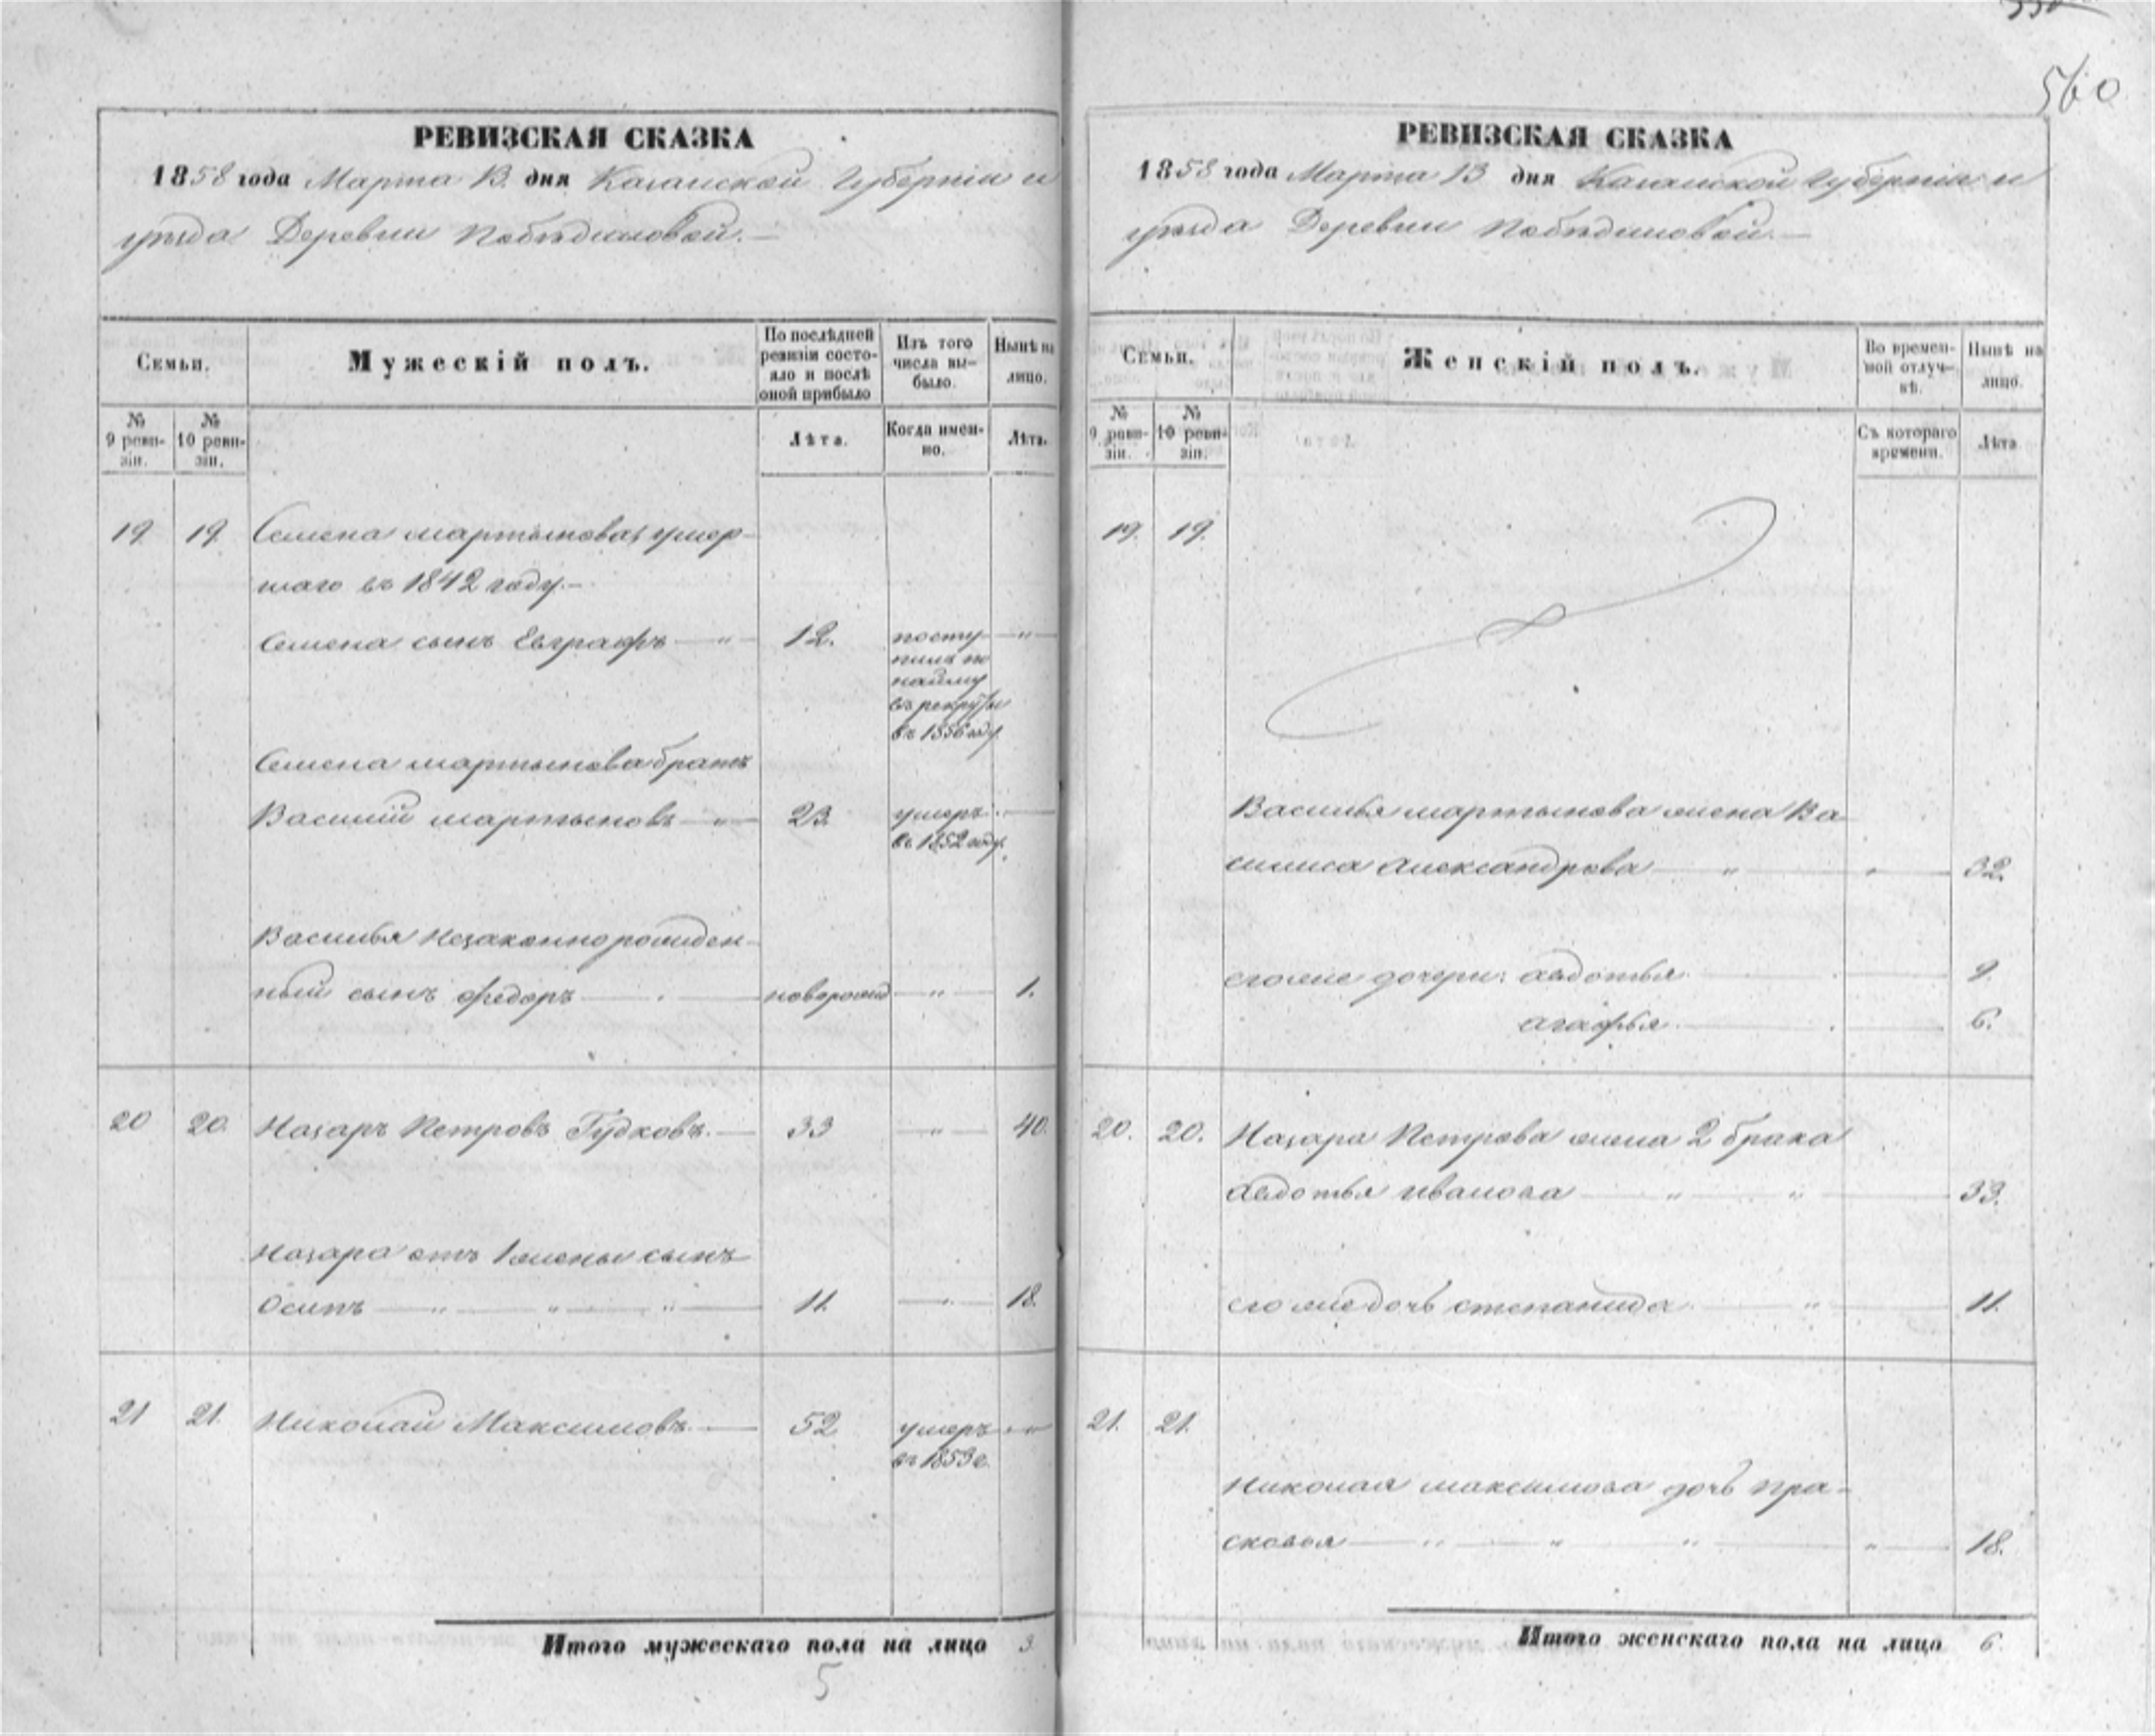 560
РЕВИЗСКАЯ СКАЗКА
1858 года Марта 13. дня Казанской Губерніи и
уѣзда Деревни Побѣдиловой.—
Семьи.
Мужескій полъ.
По послѣдней ревизіи состояло и послѣ оной прибыло
Изъ того числа выбыло.
Нынѣ на лицо.
№ 9 ревизіи.
№ 10 ревизіи.
Лѣта.
Когда именно.
Лѣта.
19. 19. Семена мартынова, умер-
шаго въ 1842 году.—
Семена сынъ Евграфъ — " — 12. посту- — " —
пилъ по
найму
въ рекруты
въ 1856 году
Семена мартынова братъ
Василій мартыновъ — " — 23. умеръ —
въ 1852 году.
Василья незаконнорожден-
ный сынъ федоръ — новорожд — " — 1.
20 20. Назаръ Петровъ Гудковъ.— 33 — " — 40.
Назара отъ 1 жены сынъ
Осипъ — " — " — " — 11. — " — 18.
21 21. Николай Максимовъ — 52 умеръ — " —
въ 1853 г.
Итого мужескаго пола на лицо 3.
5
РЕВИЗСКАЯ СКАЗКА
1858 года Марта 13 дня Казанской Губерніи и
уѣзда Деревни Побѣдиловой.—
Семьи.
Женскій полъ.
Во временной отлучкѣ.
Нынѣ на лицо.
№ 9 ревизіи.
№ 10 ревизіи.
Съ котораго времени.
Лѣта
19. 19.
Василья мартынова жена Ва-
силиса Александрова — " — " — 32.
его же дочери: авдотья — 9.
агафья — 6.
20. 20. Назара Петрова жена 2 брака
авдотья иванова — " — " — 33.
его же дочь степанида " — 11.
21. 21.
Николая максимова дочь пра-
сковья — " — " — " — " — 18.
Итого женскаго пола на лицо 6.